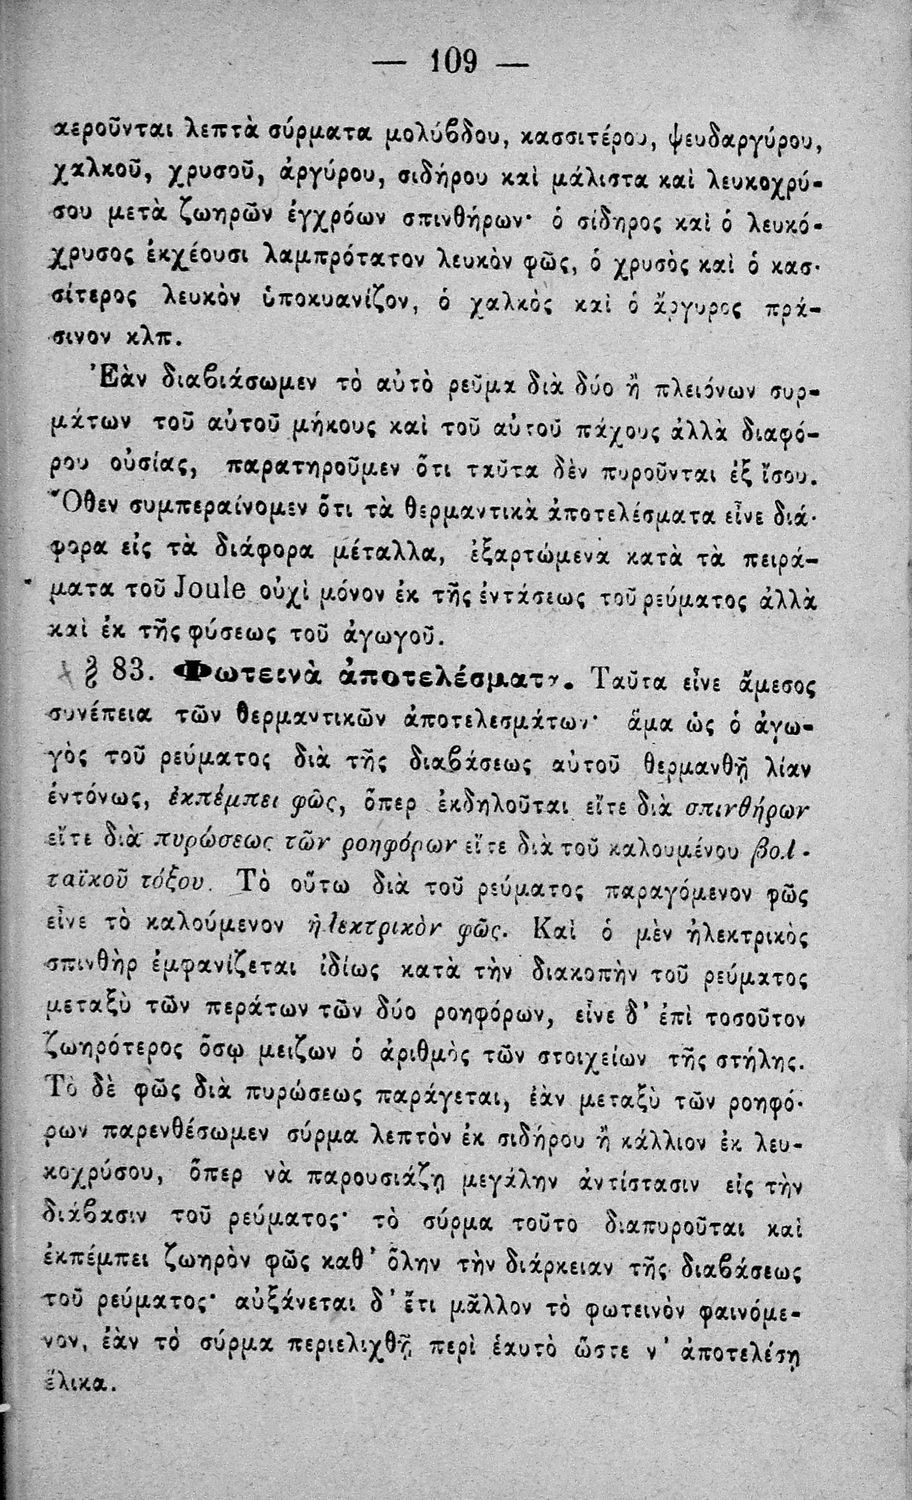 — 109 —
αεροῦνται λεπτὰ σύρματα μολύβδου, κασσιτέρου, ψευδαργύρου,
χαλκοῦ, χρυσοῦ, ἀργύρου, σιδήρου καὶ μάλιστα καὶ λευκοχρύ-
σου μετὰ ζωηρῶν ἐγχρόων σπινθήρων· ὁ σίδηρος καὶ ὁ λευκό-
χρυσος ἐκχέουσι λαμπρότατον λευκὸν φῶς, ὁ χρυσὸς καὶ ὁ κασ-
σίτερος λευκὸν ὑποκυανίζον, ὁ χαλκὸς καὶ ὁ ἄργυρος πρά-
σινον κλπ.
Ἐὰν διαβιάσωμεν τὸ αὐτὸ ρεῦμα διὰ δύο ἢ πλειόνων συρ-
μάτων τοῦ αὐτοῦ μήκους καὶ τοῦ αὐτοῦ πάχους ἀλλὰ διαφό-
ρου οὐσίας, παρατηροῦμεν ὅτι ταῦτα δὲν πυροῦνται ἐξ ἴσου.
Ὅθεν συμπεραίνομεν ὅτι τὰ θερμαντικὰ ἀποτελέσματα εἶνε διά-
φορα εἰς τὰ διάφορα μέταλλα, ἐξαρτώμενα κατὰ τὰ πειρά-
ματα τοῦ Joule οὐχὶ μόνον ἐκ τῆς ἐντάσεως τοῦ ρεύματος ἀλλὰ
καὶ ἐκ τῆς φύσεως τοῦ ἀγωγοῦ.
§ 83. Φωτεινὰ ἀποτελέσματα. Ταῦτα εἶνε ἄμεσος
συνέπεια τῶν θερμαντικῶν ἀποτελεσμάτων· ἅμα ὡς ὁ ἀγω-
γὸς τοῦ ρεύματος διὰ τῆς διαβάσεως αὐτοῦ θερμανθῇ λίαν
ἐντόνως, ἐκπέμπει φῶς, ὅπερ ἐκδηλοῦται εἴτε διὰ σπινθήρων
εἴτε διὰ πυρώσεως τῶν ροηφόρων εἴτε διὰ τοῦ καλουμένου βολ-
ταϊκοῦ τόξου. Τὸ οὕτω διὰ τοῦ ρεύματος παραγόμενον φῶς
εἶνε τὸ καλούμενον ἠλεκτρικὸν φῶς. Καὶ ὁ μὲν ἠλεκτρικὸς
σπινθὴρ ἐμφανίζεται ἰδίως κατὰ τὴν διακοπὴν τοῦ ρεύματος
μεταξὺ τῶν περάτων τῶν δύο ροηφόρων, εἶνε δ' ἐπὶ τοσοῦτον
ζωηρότερος ὅσῳ μείζων ὁ ἀριθμὸς τῶν στοιχείων τῆς στήλης.
Τὸ δὲ φῶς διὰ πυρώσεως παράγεται, ἐὰν μεταξὺ τῶν ροηφό-
ρων παρενθέσωμεν σύρμα λεπτὸν ἐκ σιδήρου ἢ κάλλιον ἐκ λευ-
κοχρύσου, ὅπερ νὰ παρουσιάζῃ μεγάλην ἀντίστασιν εἰς τὴν
διάβασιν τοῦ ρεύματος· τὸ σύρμα τοῦτο διαπυροῦται καὶ
ἐκπέμπει ζωηρὸν φῶς καθ' ὅλην τὴν διάρκειαν τῆς διαβάσεως
τοῦ ρεύματος· αὐξάνεται δ' ἔτι μᾶλλον τὸ φωτεινὸν φαινόμε-
νον, ἐὰν τὸ σύρμα περιελιχθῇ περὶ ἑαυτὸ ὥστε ν' ἀποτελέσῃ
ἕλικα.